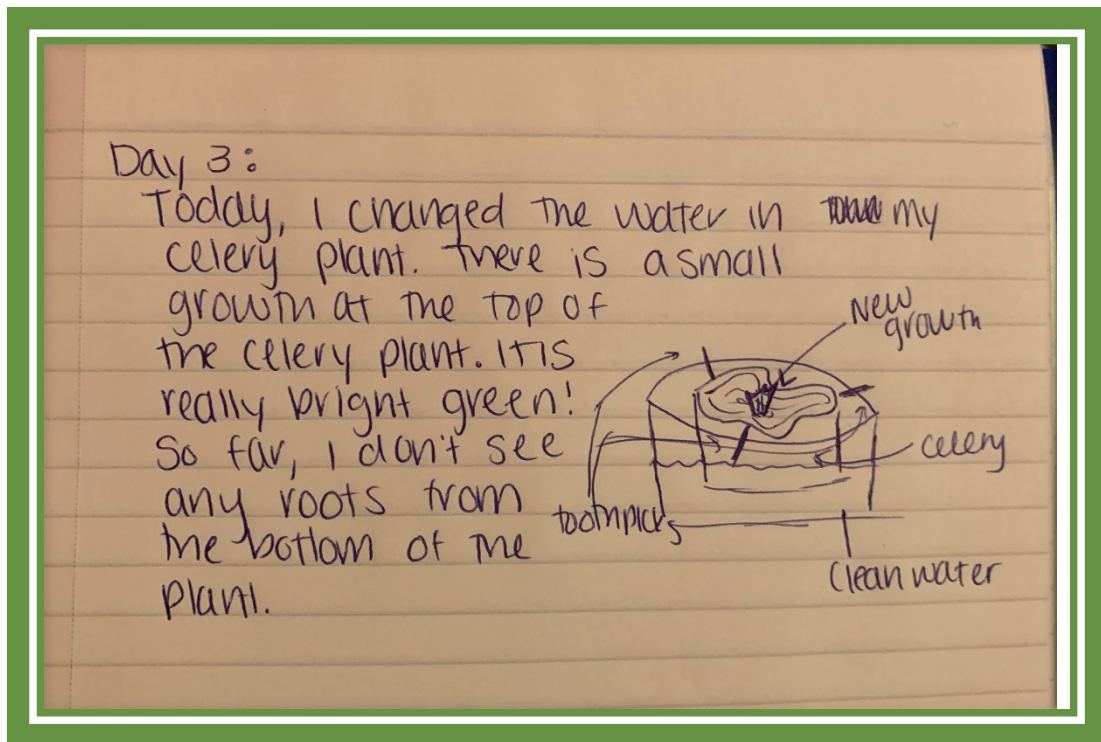 Day 3:
Today, I changed the water in my
celery plant. There is a small
growth at the top of
the celery plant. It is
really bright green!
So far, I don't see
any roots from
the bottom of the
plant.
New
growth
celery
toothpicks
Clean water